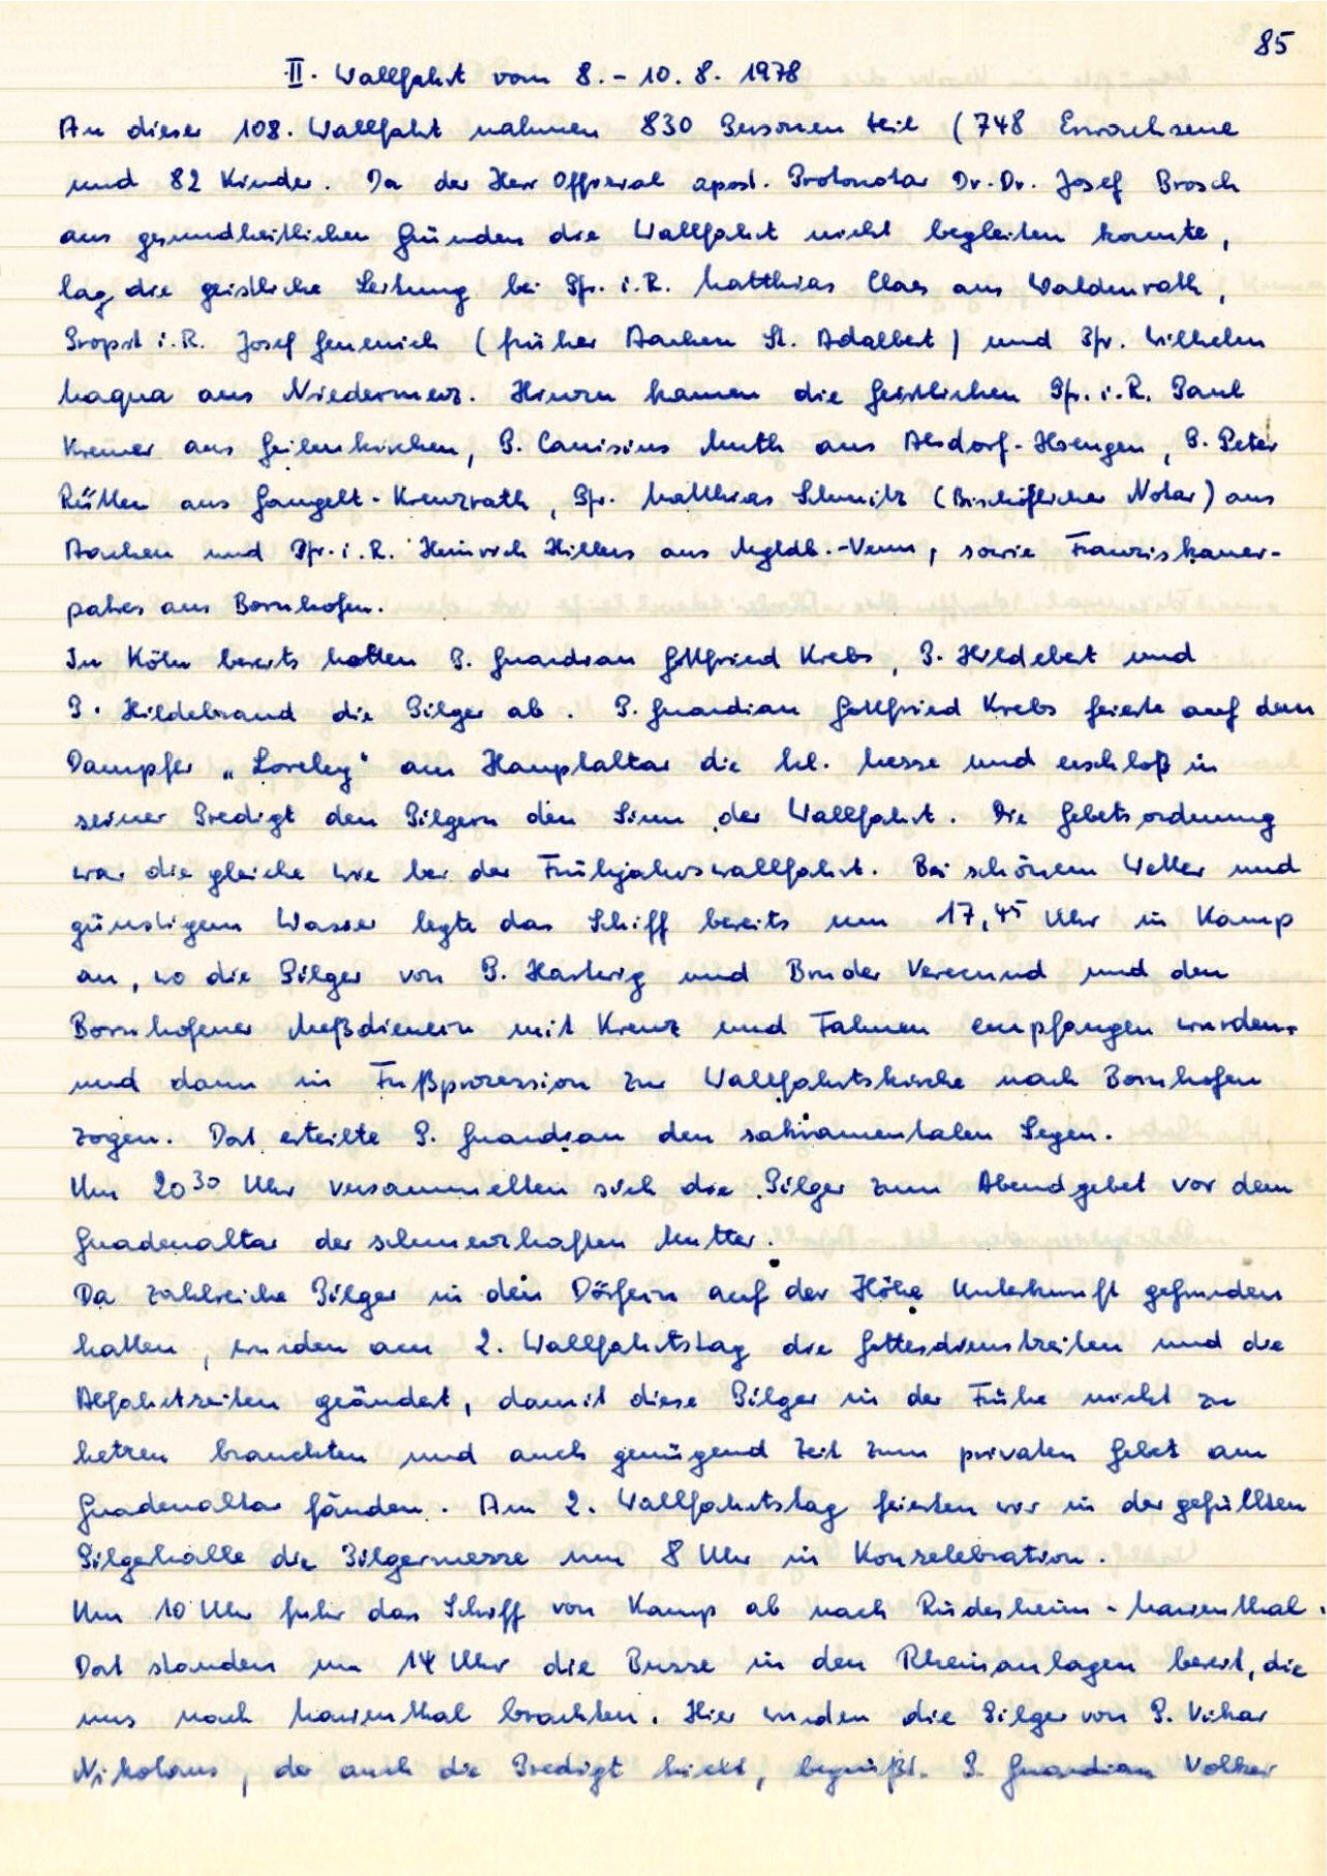 85
II. Wallfahrt vom 8.-10.8.1978
An dieser 108. Wallfahrt nahmen 830 Personen teil (748 Erwachsene
und 82 Kinder. Da der Herr Offizial apost. Protonotar Dr. Dr. Josef Brosch
aus gesundheitlichen Gründen die Wallfahrt nicht begleiten konnte,
lag die geistliche Leitung bei Pfr. i.R. Matthias Claes aus Waldenrath,
Propst i.R. Josef Genenich (früher Aachen St. Adalbert) und Pfr. Wilhelm
Maqua aus Niedermerz. Hinzu kamen die Geistlichen Pfr. i.R. Paul
Kremer aus Geilenkirchen, P. Canisius Muth aus Alsdorf-Hoengen, P. Peter
Rütten aus Gangelt-Kreuzrath, Pfr. Matthias Schmitz (Bischöflicher Notar) aus
Aachen und Pfr. i.R. Heinrich Hillers aus Mgldb.-Venn, sowie Franziskaner-
patres aus Bornhofen.
In Köln bereits holten P. Guardian Gottfried Krebs, P. Hildebert und
P. Hildebrand die Pilger ab. P. Guardian Gottfried Krebs feierte auf dem
Dampfer „Loreley" am Hauptaltar die hl. Messe und erschloß in
seiner Predigt den Pilgern den Sinn der Wallfahrt. Die Gebetsordnung
war die gleiche wie bei der Frühjahrswallfahrt. Bei schönem Wetter und
günstigem Wasser legte das Schiff bereits um 17,45 Uhr in Kamp
an, wo die Pilger von P. Hartwig und Bruder Verecund und den
Bornhofener Meßdienern mit Kreuz und Fahnen empfangen wurden.
und dann in Fußprozession zur Wallfahrtskirche nach Bornhofen
zogen. Dort erteilte P. Guardian den sakramentalen Segen.
Um 20 30 Uhr versammelten sich die Pilger zum Abendgebet vor dem
Gnadenaltar der schmerzhaften Mutter.
Da zahlreiche Pilger in den Dörfern auf der Höhe Unterkunft gefunden
hatten, wurden am 2. Wallfahrtstag die Gottesdienstzeiten und die
Abfahrtzeiten geändert, damit diese Pilger in der Frühe nicht zu
hetzen brauchten und auch genügend Zeit zum privaten Gebet am
Gnadenaltar fänden. Am 2. Wallfahrtstag feierten wir in der gefüllten
Pilgerhalle die Pilgermesse um 8 Uhr in Konzelebration.
Um 10 Uhr fuhr das Schiff von Kamp ab nach Rüdesheim-Marienthal.
Dort standen um 14 Uhr die Busse in den Rheinanlagen bereit, die
uns nach Marienthal brachten. Hier wurden die Pilger von P. Vikar
Nikolaus, der auch die Predigt hielt, begrüßt. P. Guardian Volker